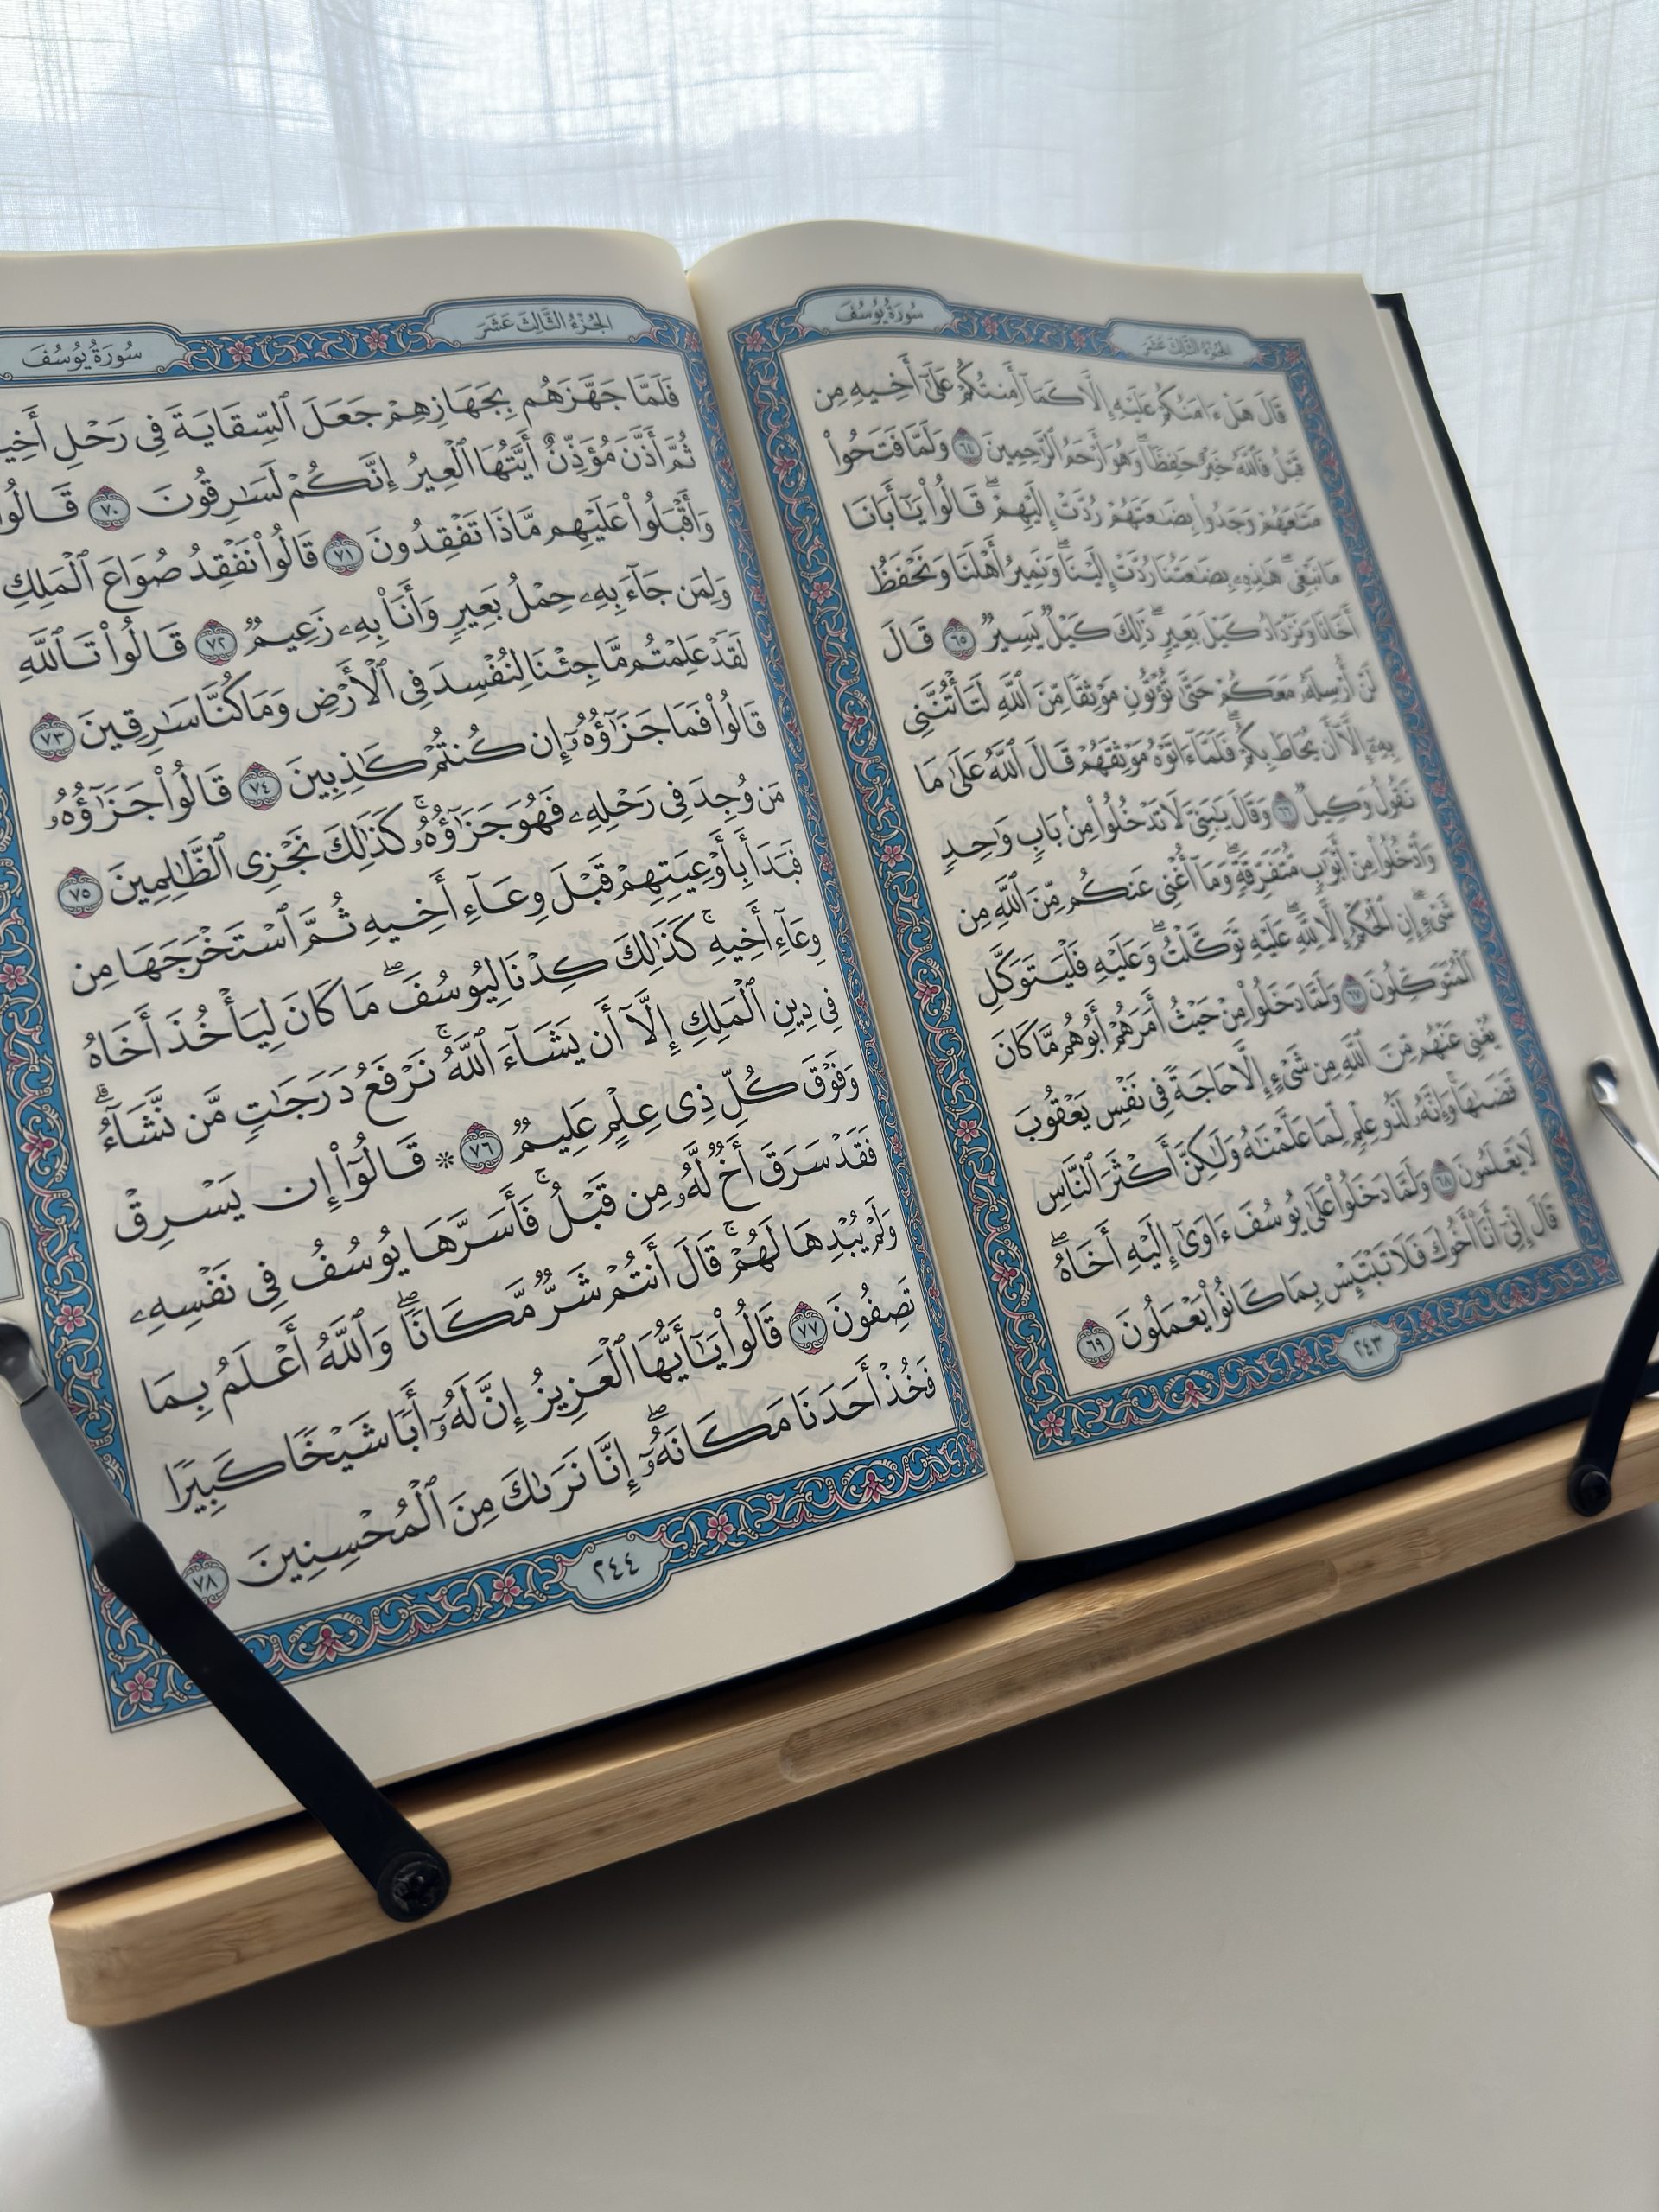 سُورَةُ يُوسُفَ
الجُزْءُ الثَّالِثَ عَشَرَ
قَالَ هَلْ ءَامَنُكُمْ عَلَيْهِ إِلَّا كَمَآ أَمِنتُكُمْ عَلَىٰٓ أَخِيهِ مِن
قَبْلُ فَٱللَّهُ خَيْرٌ حَٰفِظًا ۖ وَهُوَ أَرْحَمُ ٱلرَّٰحِمِينَ ٦٤ وَلَمَّا فَتَحُوا۟
مَتَٰعَهُمْ وَجَدُوا۟ بِضَٰعَتَهُمْ رُدَّتْ إِلَيْهِمْ ۖ قَالُوا۟ يَٰٓأَبَانَا
مَا نَبْغِى ۖ هَٰذِهِۦ بِضَٰعَتُنَا رُدَّتْ إِلَيْنَا ۖ وَنَمِيرُ أَهْلَنَا وَنَحْفَظُ
أَخَانَا وَنَزْدَادُ كَيْلَ بَعِيرٍ ۖ ذَٰلِكَ كَيْلٌ يَسِيرٌ ٦٥ قَالَ
لَنْ أُرْسِلَهُۥ مَعَكُمْ حَتَّىٰ تُؤْتُونِ مَوْثِقًا مِّنَ ٱللَّهِ لَتَأْتُنَّنِى
بِهِۦٓ إِلَّآ أَن يُحَاطَ بِكُمْ ۖ فَلَمَّآ ءَاتَوْهُ مَوْثِقَهُمْ قَالَ ٱللَّهُ عَلَىٰ مَا
نَقُولُ وَكِيلٌ ٦٦ وَقَالَ يَٰبَنِىَّ لَا تَدْخُلُوا۟ مِنۢ بَابٍ وَٰحِدٍ
وَٱدْخُلُوا۟ مِنْ أَبْوَٰبٍ مُّتَفَرِّقَةٍ ۖ وَمَآ أُغْنِى عَنكُم مِّنَ ٱللَّهِ مِن
شَىْءٍ ۖ إِنِ ٱلْحُكْمُ إِلَّا لِلَّهِ ۖ عَلَيْهِ تَوَكَّلْتُ ۖ وَعَلَيْهِ فَلْيَتَوَكَّلِ
ٱلْمُتَوَكِّلُونَ ٦٧ وَلَمَّا دَخَلُوا۟ مِنْ حَيْثُ أَمَرَهُمْ أَبُوهُم مَّا كَانَ
يُغْنِى عَنْهُم مِّنَ ٱللَّهِ مِن شَىْءٍ إِلَّا حَاجَةً فِى نَفْسِ يَعْقُوبَ
قَضَىٰهَا ۚ وَإِنَّهُۥ لَذُو عِلْمٍ لِّمَا عَلَّمْنَٰهُ وَلَٰكِنَّ أَكْثَرَ ٱلنَّاسِ
لَا يَعْلَمُونَ ٦٨ وَلَمَّا دَخَلُوا۟ عَلَىٰ يُوسُفَ ءَاوَىٰٓ إِلَيْهِ أَخَاهُ ۖ
قَالَ إِنِّىٓ أَنَا۠ أَخُوكَ فَلَا تَبْتَئِسْ بِمَا كَانُوا۟ يَعْمَلُونَ ٦٩
٢٤٣
الجُزْءُ الثَّالِثَ عَشَرَ
سُورَةُ يُوسُفَ
فَلَمَّا جَهَّزَهُم بِجَهَازِهِمْ جَعَلَ ٱلسِّقَايَةَ فِى رَحْلِ
ثُمَّ أَذَّنَ مُؤَذِّنٌ أَيَّتُهَا ٱلْعِيرُ إِنَّكُمْ لَسَٰرِقُونَ ٧٠ قَالُوا۟
وَأَقْبَلُوا۟ عَلَيْهِم مَّاذَا تَفْقِدُونَ ٧١ قَالُوا۟ نَفْقِدُ صُوَاعَ ٱلْمَلِكِ
وَلِمَن جَآءَ بِهِۦ حِمْلُ بَعِيرٍ وَأَنَا۠ بِهِۦ زَعِيمٌ ٧٢ قَالُوا۟ تَٱللَّهِ
لَقَدْ عَلِمْتُم مَّا جِئْنَا لِنُفْسِدَ فِى ٱلْأَرْضِ وَمَا كُنَّا سَٰرِقِينَ ٧٣
قَالُوا۟ فَمَا جَزَٰٓؤُهُۥٓ إِن كُنتُمْ كَٰذِبِينَ ٧٤ قَالُوا۟ جَزَٰٓؤُهُۥ
مَن وُجِدَ فِى رَحْلِهِۦ فَهُوَ جَزَٰٓؤُهُۥ ۚ كَذَٰلِكَ نَجْزِى ٱلظَّٰلِمِينَ ٧٥
فَبَدَأَ بِأَوْعِيَتِهِمْ قَبْلَ وِعَآءِ أَخِيهِ ثُمَّ ٱسْتَخْرَجَهَا مِن
وِعَآءِ أَخِيهِ ۚ كَذَٰلِكَ كِدْنَا لِيُوسُفَ ۖ مَا كَانَ لِيَأْخُذَ أَخَاهُ
فِى دِينِ ٱلْمَلِكِ إِلَّآ أَن يَشَآءَ ٱللَّهُ ۚ نَرْفَعُ دَرَجَٰتٍ مَّن نَّشَآءُ ۗ
وَفَوْقَ كُلِّ ذِى عِلْمٍ عَلِيمٌ ٧٦ * قَالُوٓا۟ إِن يَسْرِقْ
فَقَدْ سَرَقَ أَخٌ لَّهُۥ مِن قَبْلُ ۚ فَأَسَرَّهَا يُوسُفُ فِى نَفْسِهِۦ
وَلَمْ يُبْدِهَا لَهُمْ ۚ قَالَ أَنتُمْ شَرٌّ مَّكَانًا ۖ وَٱللَّهُ أَعْلَمُ بِمَا
تَصِفُونَ ٧٧ قَالُوا۟ يَٰٓأَيُّهَا ٱلْعَزِيزُ إِنَّ لَهُۥٓ أَبًا شَيْخًا كَبِيرًا
فَخُذْ أَحَدَنَا مَكَانَهُۥٓ ۖ إِنَّا نَرَىٰكَ مِنَ ٱلْمُحْسِنِينَ ٧٨
٢٤٤